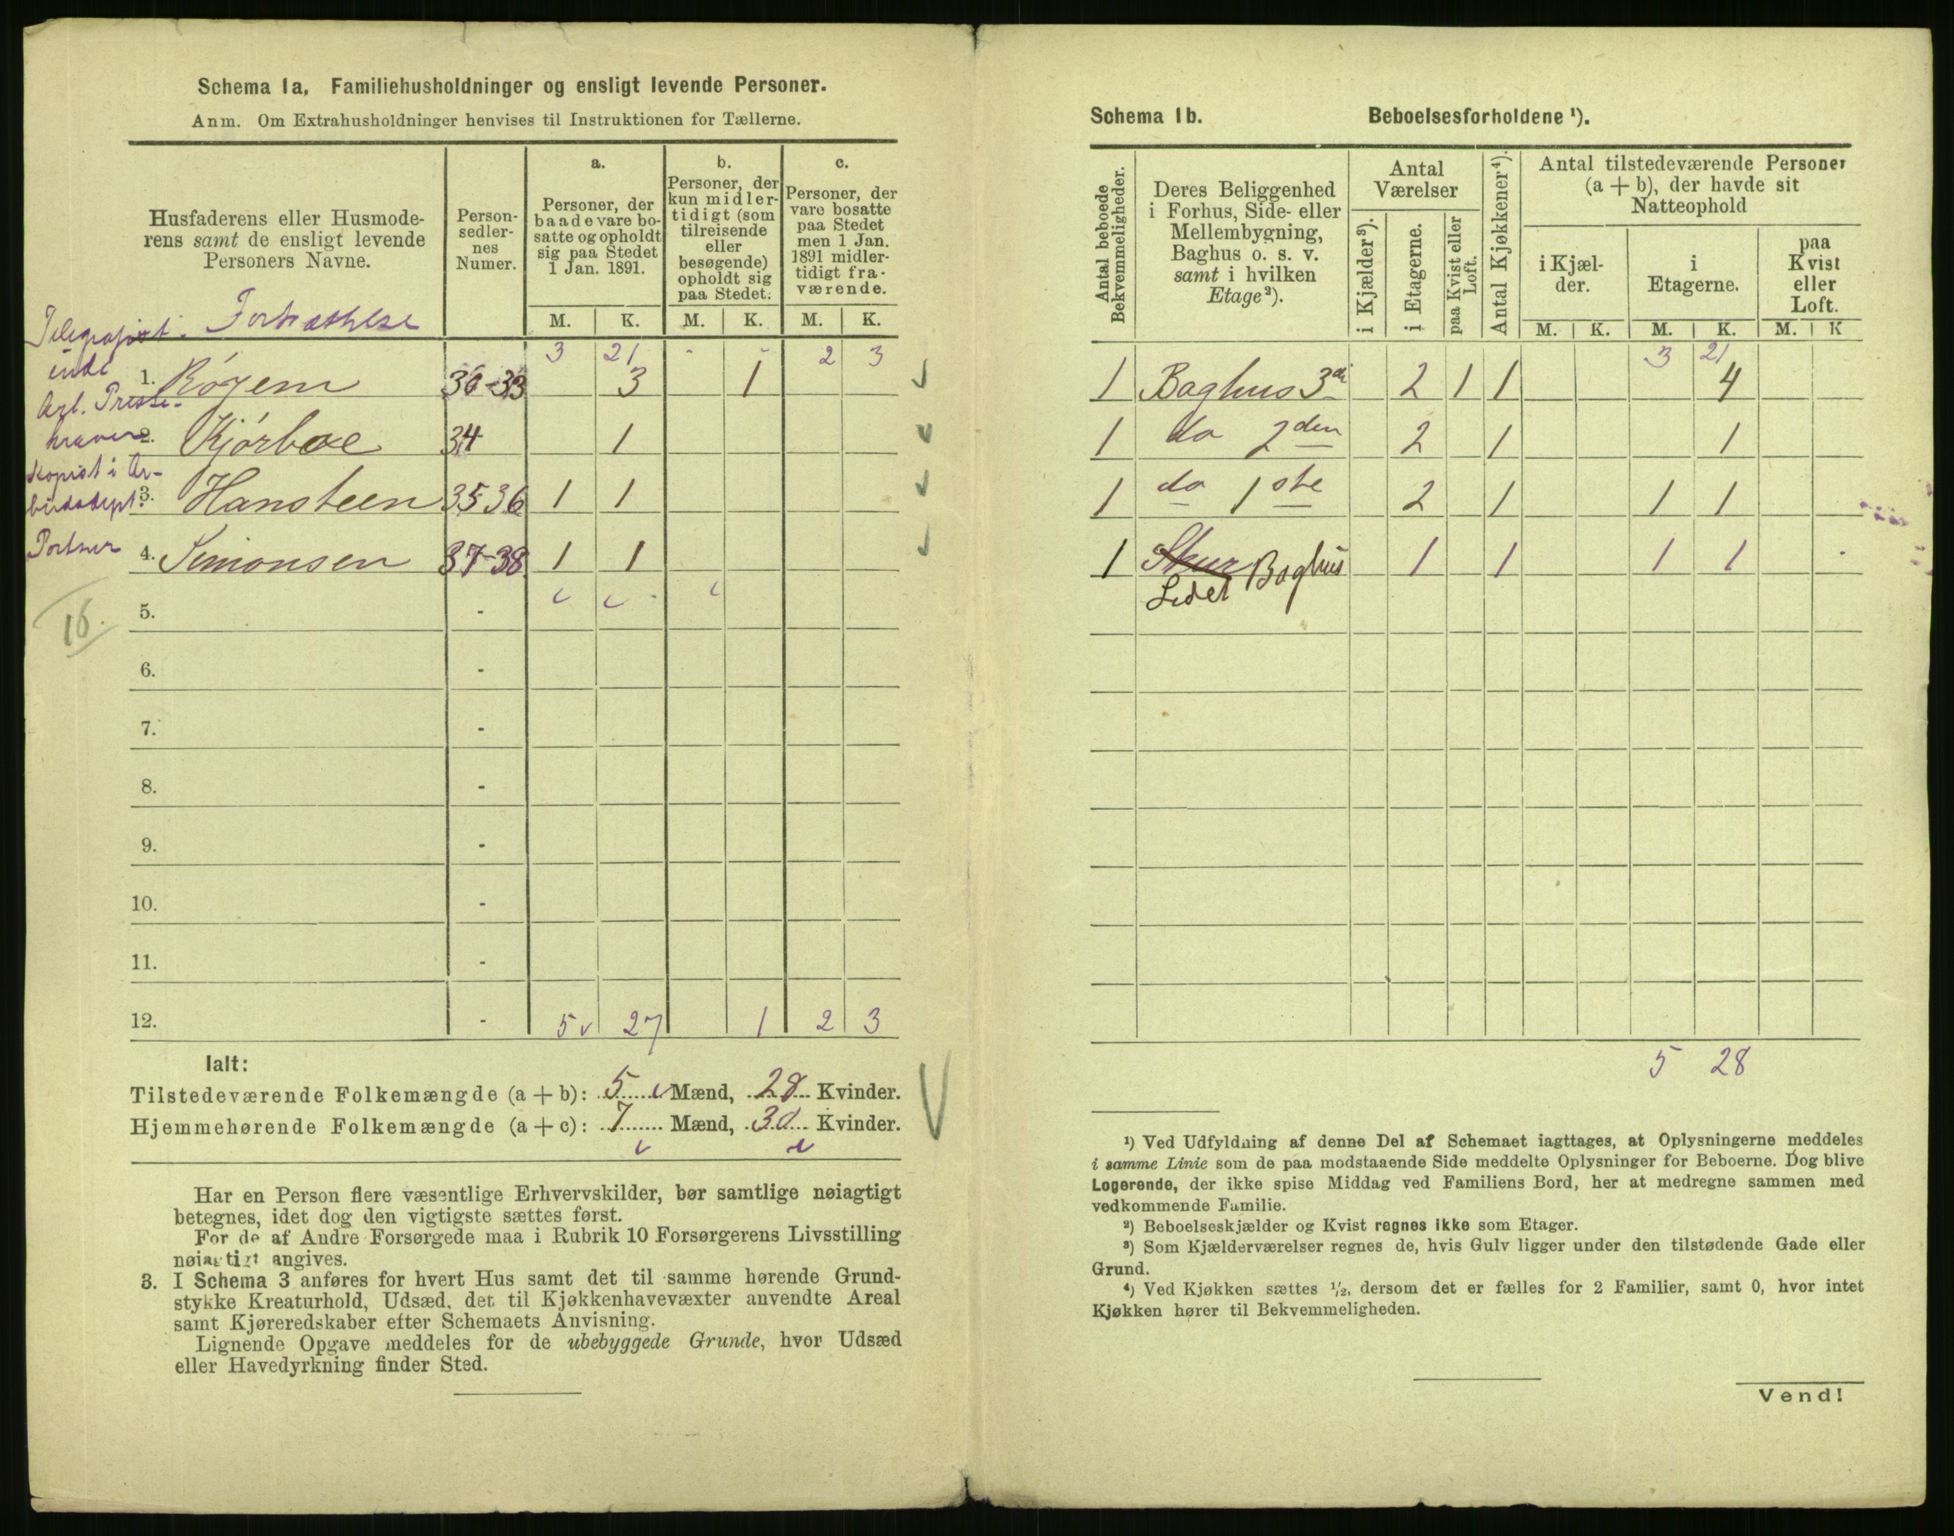 Schema 1a. Familiehusholdninger og ensligt levende Personer.
Anm. Om Extrahusholdninger henvises til Instruktionen for Tællerne.
Husfaderens eller Husmoderens samt de ensligt levende Personers Navne.
Personsedlernes Numer.
a. Personer, der baade vare bosatte og opholdt sig paa Stedet 1 Jan. 1891.
b. Personer, der kun midlertidigt (som tilreisende eller besøgende) opholdt sig paa Stedet.
c. Personer, der vare bosatte paa Stedet men 1 Jan. 1891 midlertidigt fraværende.
M. K. M. K. M. K.
Fortsættelse 3 21 - - 2 3
Telegrafist-
inde
1. Röyem 30-33 3 1
2. Kjørboe 34 1
Kopist i Ar-
beidsdept.
3. Hansteen 35 36 1 1
Portner
4. Simonsen 37-38 1 1
16.
5. -
6. -
7. -
8. -
9. -
10. -
11. -
12. - 5 27 1 2 3
Ialt:
Tilstedeværende Folkemængde (a + b): 5 Mænd, 28 Kvinder.
Hjemmehørende Folkemængde (a + c): 7 Mænd, 30 Kvinder.
Har en Person flere væsentlige Erhvervskilder, bør samtlige nøiagtigt
betegnes, idet dog den vigtigste sættes først.
For de af Andre Forsørgede maa i Rubrik 10 Forsørgerens Livsstilling
nøiagtigt angives.
3. I Schema 3 anføres for hvert Hus samt det til samme hørende Grund-
stykke Kreaturhold, Udsæd, det til Kjøkkenhavevæxter anvendte Areal
samt Kjøreredskaber efter Schemaets Anvisning.
Lignende Opgave meddeles for de ubebyggede Grunde, hvor Udsæd
eller Havedyrkning finder Sted.
Schema 1b. Beboelsesforholdene ¹).
Antal beboede Bekvemmeligheder.
Deres Beliggenhed i Forhus, Side- eller Mellembygning, Baghus o. s. v. samt i hvilken Etage²).
Antal Værelser
i Kjælder³).
i Etagerne.
paa Kvist eller Loft.
Antal Kjøkkener⁴).
Antal tilstedeværende Personer (a + b), der havde sit Natteophold
i Kjælder. i Etagerne. paa Kvist eller Loft.
M. K. M. K. M. K
3 21
1 Baghus 3di 2 1 1 4
1 do 2den 2 1 1
1 do 1ste 2 1 1 1
1 Skur Baghus 1 1 1 1
5 28
¹) Ved Udfyldning af denne Del af Schemaet iagttages, at Oplysningerne meddeles
i samme Linie som de paa modstaaende Side meddelte Oplysninger for Beboerne. Dog blive
Logerende, der ikke spise Middag ved Familiens Bord, her at medregne sammen med
vedkommende Familie.
²) Beboelseskjælder og Kvist regnes ikke som Etager.
³) Som Kjælderværelser regnes de, hvis Gulv ligger under den tilstødende Gade eller
Grund.
⁴) Ved Kjøkken sættes ½, dersom det er fælles for 2 Familier, samt 0, hvor intet
Kjøkken hører til Bekvemmeligheden.
Vend!